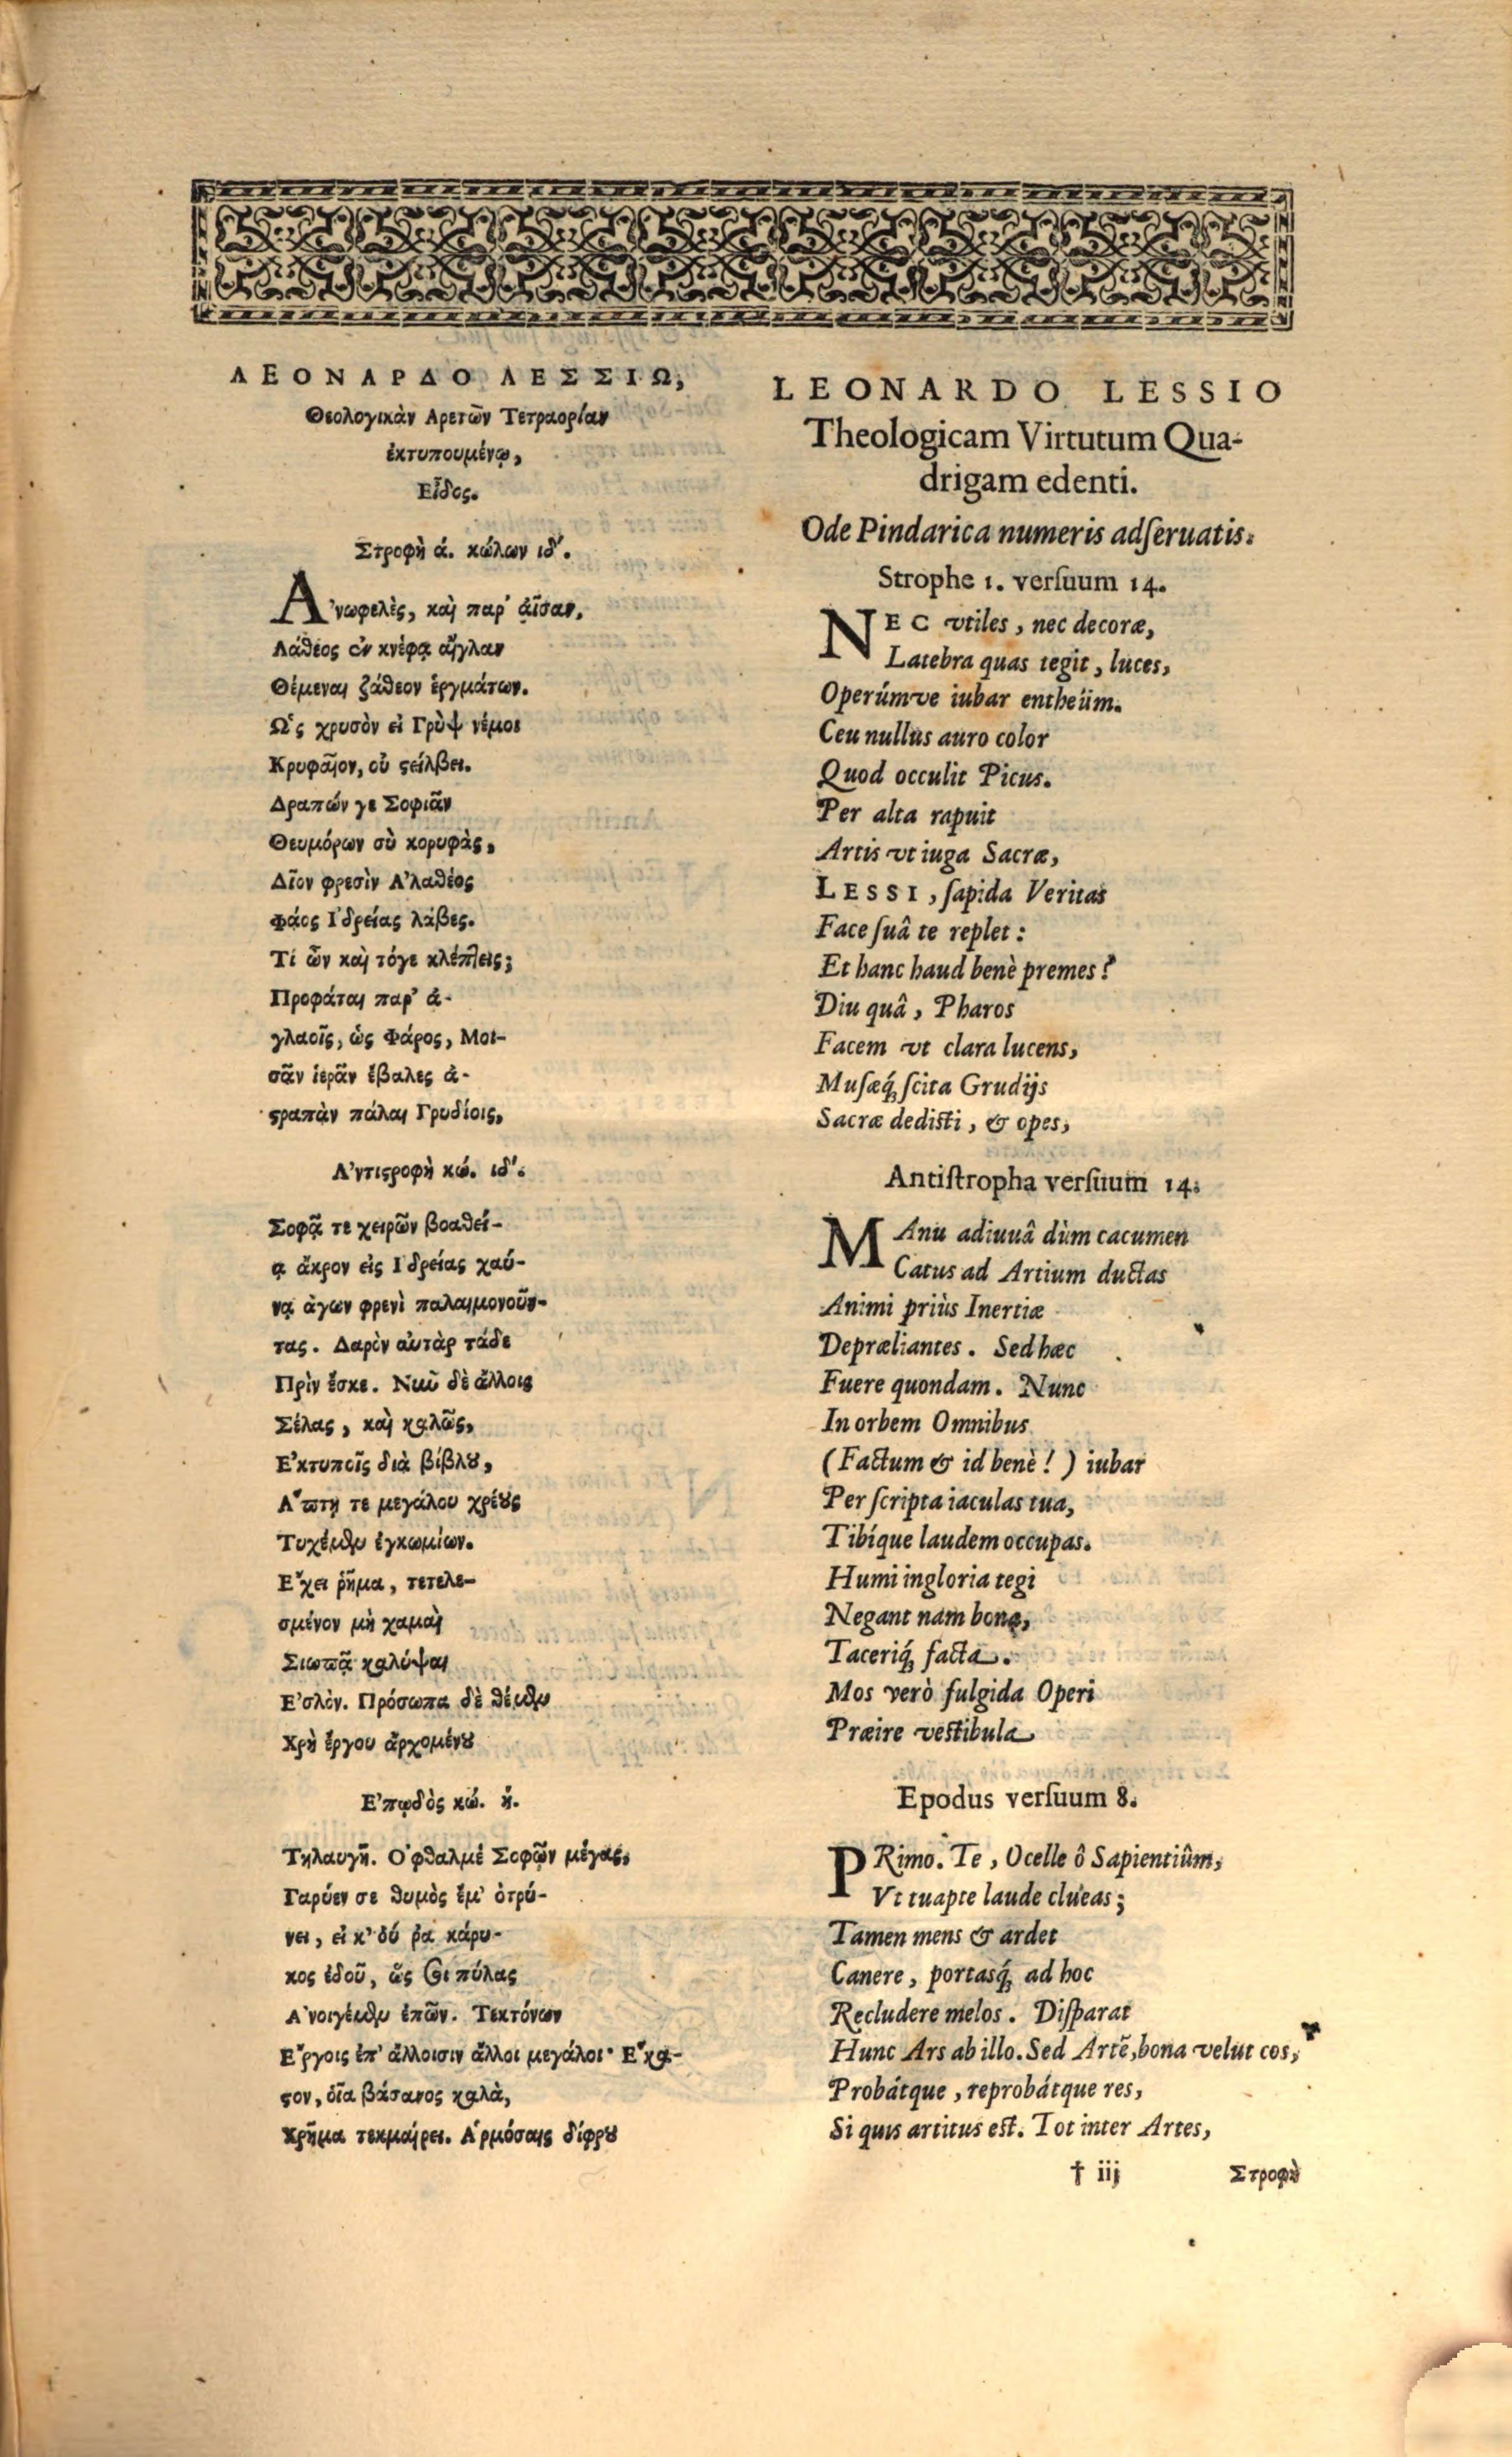 ΛΕΟΝΑΡΔΟ ΛΕΣΣΙΩ,
Θεολογικὰν Ἀρετῶν Τετραορίαν
ἐκτυπουμένῳ,
Εἶδος.
Στροφὴ ά. κώλων ιδ'.
Ἀνωφελὲς, καὶ παρ' ᾆσαν,
Λάθεος ἐν κνέφᾳ αἴγλαν
Θέμεναι ζάθεον ἑργμάτων.
Ὡς χρυσὸν εἰ Γρὺψ νέμοι
Κρυφαῖον, οὐ στείλβει.
Δραπών γε Σοφιᾶν
Θευμόρων σὺ κορυφὰς,
Δῖον φρεσὶν Ἀλαθέος
Φάος Ἰδρείας λάβες.
Τί ὦν καὶ τόγε κλέπτεις;
Προφάται παρ' ἀ-
γλαοῖς, ὡς Φάρος, Μοι-
σᾶν ἱερᾶν ἔβαλες ἀ-
στραπὰν πάλαι Γρυδίοις,
Ἀντιστροφὴ κώ. ιδ'.
Σοφᾷ τε χειρῶν βοαθεί-
ᾳ ἄκρον εἰς Ἰδρείας χαύ-
νᾳ ἄγων φρενὶ παλαιμονοῦν-
τας. Δαρὸν αὐτὰρ τάδε
Πρὶν ἔσκε. Νῦν δὲ ἄλλοις
Σέλας, καὶ καλῶς,
Ἐκτυποῖς διὰ βίβλου,
Ἀώτῃ τε μεγάλου χρέους
Τυχέμεν ἐγκωμίων.
Ἔχει ῥῆμα, τετελε-
σμένον μὴ χαμαὶ
Σιωπᾷ καλύψαι
Ἐσλόν. Πρόσωπα δὲ θέμεν
Χρὴ ἔργου ἀρχομένου
Ἐπῳδὸς κώ. ή.
Τηλαυγῆ. Ὀφθαλμέ Σοφῶν μέγας,
Γαρύεν σε θυμὸς ἔμ' ὀτρύ-
νει, εἰ κ' δύ ῥα κάρυ-
κος ἐδοῦ, ὥς οἱ πύλας
Ἀνοιγέμεν ἐπῶν. Τεκτόνων
Ἔργοις ἐπ' ἄλλοισιν ἄλλοι μεγάλοι· Ἕκα-
στον, οἷα βάσανος καλὰ,
Χρῆμα τεκμαίρει. Ἁρμόσαις δίφρου
LEONARDO LESSIO
Theologicam Virtutum Qua-
drigam edenti.
Ode Pindarica numeris adſeruatis.
Strophe 1. verſuum 14.
NEC vtiles, nec decoræ,
Latebra quas tegit, luces,
Operúmve iubar entheûm.
Ceu nullus auro color
Quod occulit Picus.
Per alta rapuit
Artis vt iuga Sacræ,
LESSI, ſapida Veritas
Face ſuâ te replet:
Et hanc haud benè premes?
Diu quâ, Pharos
Facem vt clara lucens,
Muſæq́ ſcita Grudijs
Sacræ dediſti, & opes,
Antiſtropha verſuum 14.
MAnu adiuuâ dùm cacumen
Catus ad Artium ductas
Animi priùs Inertiæ
Depræliantes. Sed hæc
Fuere quondam. Nunc
In orbem Omnibus
(Factum & id benè!) iubar
Per ſcripta iaculas tua,
Tibíque laudem occupas.
Humi ingloria tegi
Negant nam bona,
Taceriq́ facta.
Mos verò fulgida Operi
Præire veſtibula
Epodus verſuum 8.
PRimo. Te, Ocelle ô Sapientiûm,
Vt tuapte laude clueas;
Tamen mens & ardet
Canere, portasq́ ad hoc
Recludere melos. Diſparat
Hunc Ars ab illo. Sed Artē, bona velut cos,
Probátque, reprobátque res,
Si quis artitus est. Tot inter Artes,
† iij
Στροφὴ